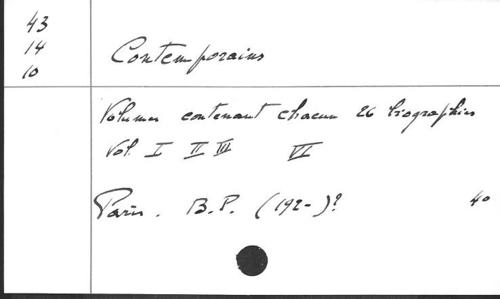 43
14
10
Contemporains
Volumes contenant chacun 26 biographies
Vol. I II III VI
Paris. B.P. (192-)?
40